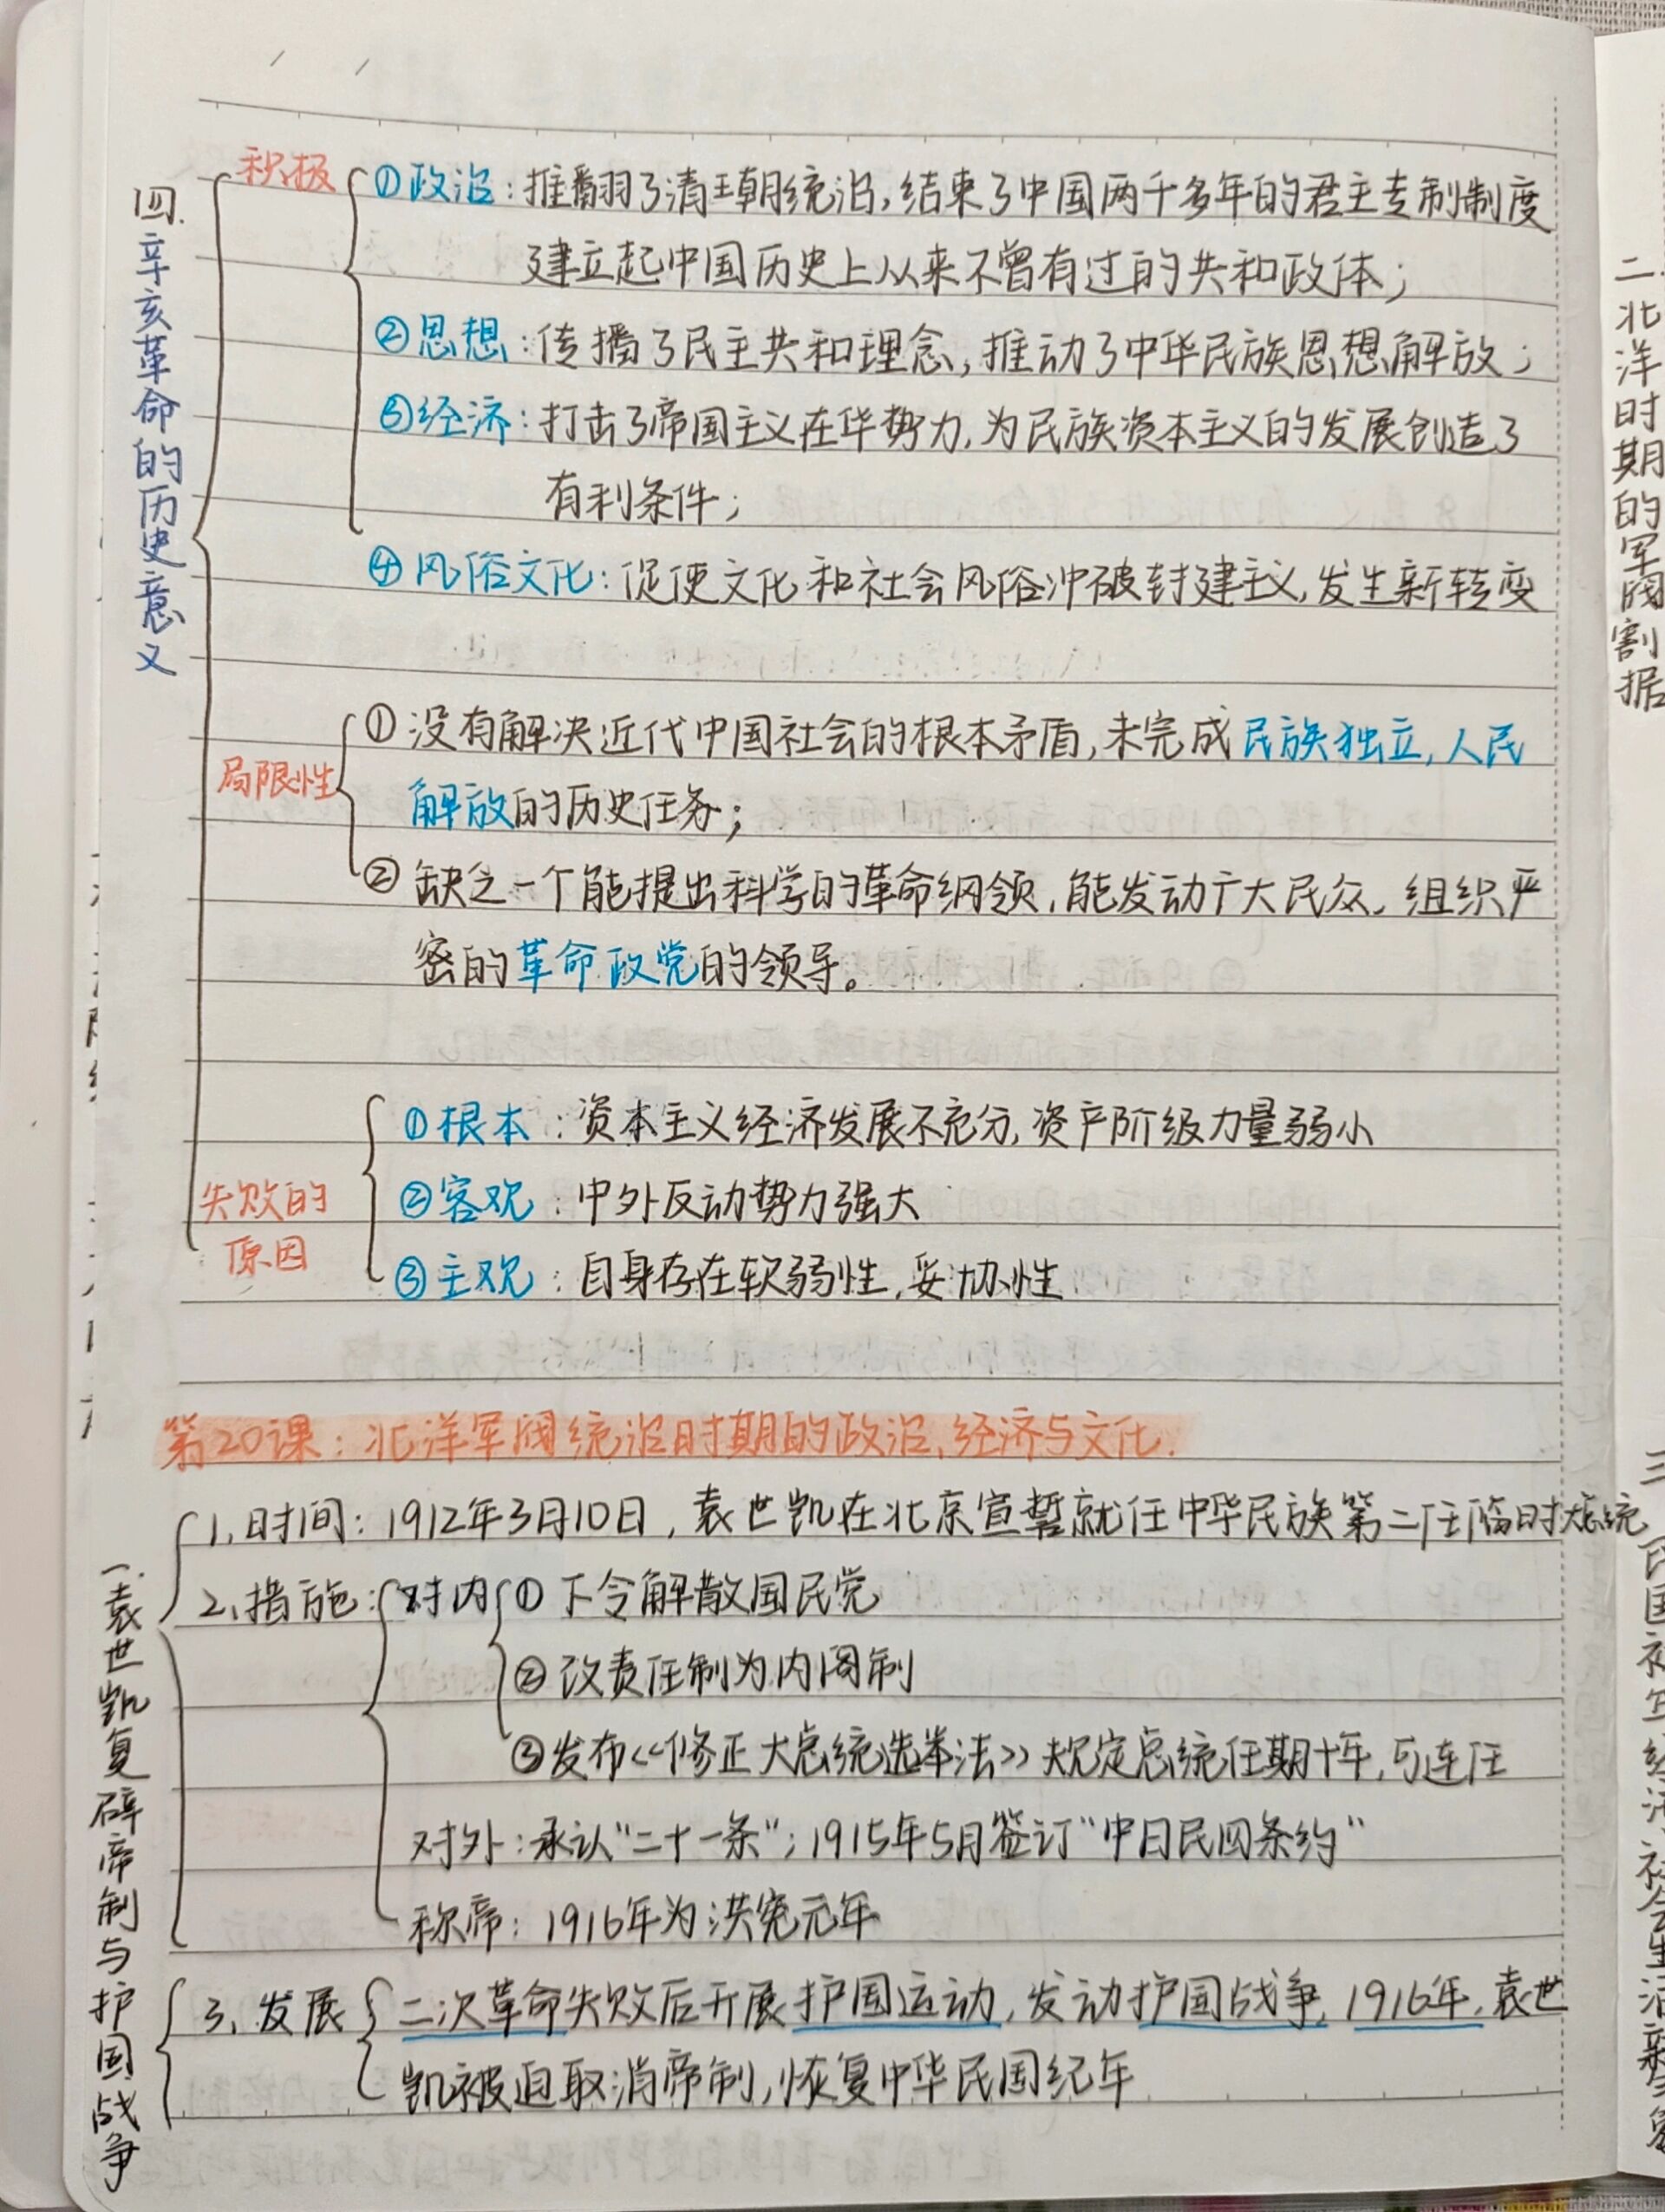 四.辛亥革命的历史意义
积极
①政治：推翻了清王朝统治,结束了中国两千多年的君主专制制度
建立起中国历史上从来不曾有过的共和政体；
②思想：传播了民主共和理念,推动了中华民族思想解放；
③经济：打击了帝国主义在华势力,为民族资本主义的发展创造了
有利条件；
④风俗文化：促使文化和社会风俗冲破封建主义,发生新转变
局限性
①没有解决近代中国社会的根本矛盾,未完成民族独立,人民
解放的历史任务；
②缺乏一个能提出科学的革命纲领,能发动广大民众、组织严
密的革命政党的领导。
失败的
原因
①根本：资本主义经济发展不充分,资产阶级力量弱小
②客观：中外反动势力强大
③主观：自身存在软弱性,妥协性
第20课：北洋军阀统治时期的政治、经济与文化.
一.袁世凯复辟帝制与护国战争
1.时间：1912年3月10日,袁世凯在北京宣誓就任中华民族第二任临时大总统
2.措施：
对内
①下令解散国民党
②改责任制为内阁制
③发布《修正大总统选举法》规定总统任期十年,可连任
对外：承认"二十一条"；1915年5月签订"中日民四条约"
称帝：1916年为洪宪元年
3.发展
二次革命失败后开展护国运动,发动护国战争,1916年,袁世
凯被迫取消帝制,恢复中华民国纪年
二北洋时期的军阀割据
三 民国初年经济社会生活新